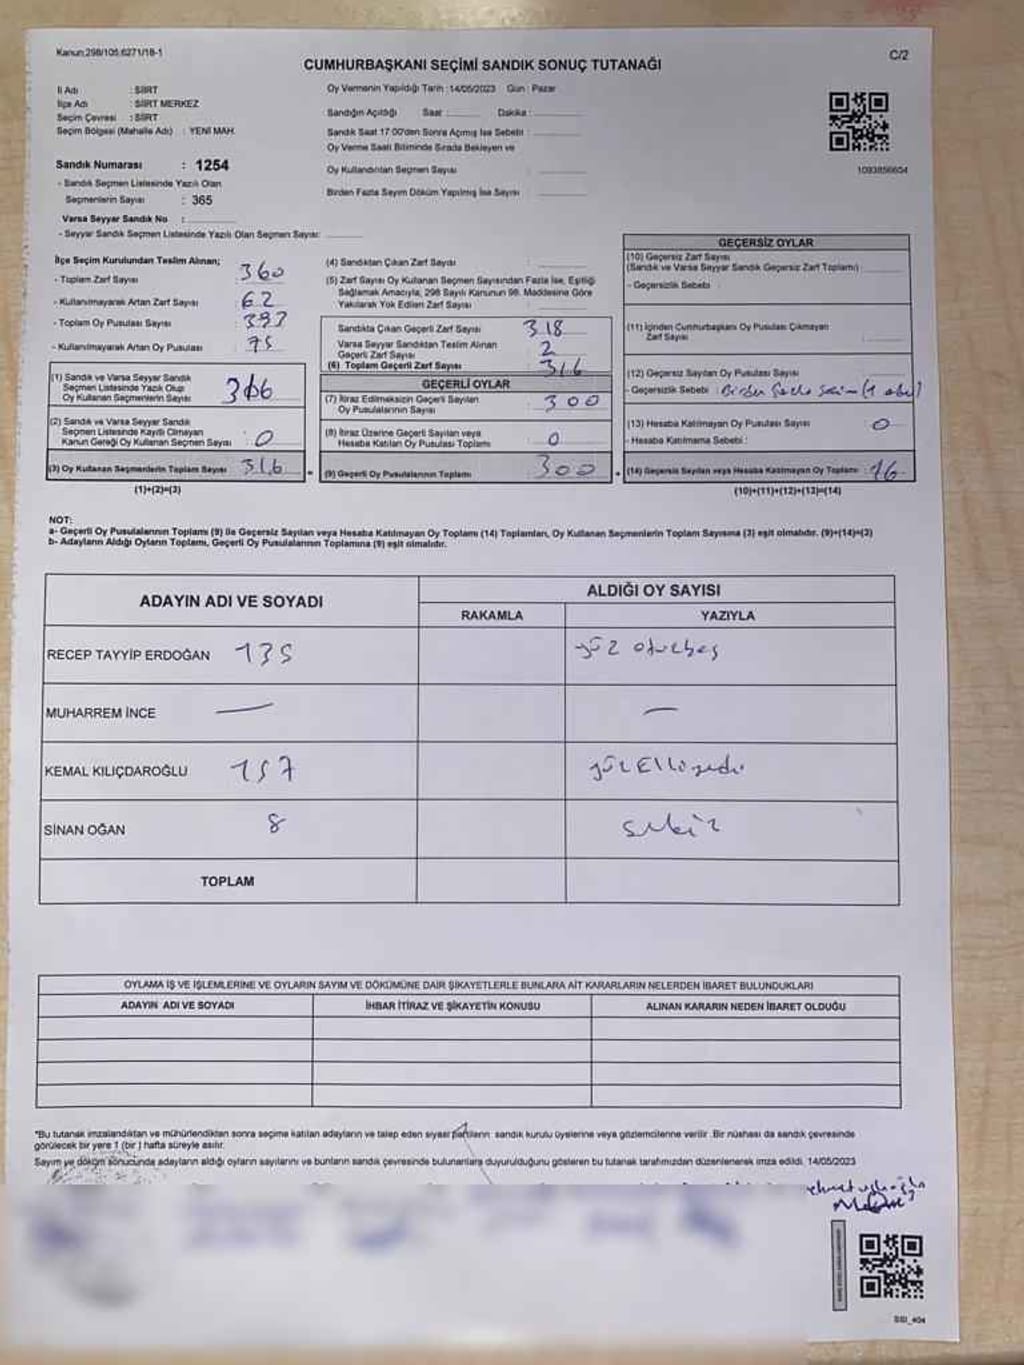 Kanun:298/105,6271/18-1
C/2
CUMHURBAŞKANI SEÇİMİ SANDIK SONUÇ TUTANAĞI
İl Adı : SİİRT
İlçe Adı : SİİRT MERKEZ
Seçim Çevresi : SİİRT
Seçim Bölgesi (Mahalle Adı) : YENİ MAH.
Sandık Numarası : 1254
- Sandık Seçmen Listesinde Yazılı Olan
Seçmenlerin Sayısı : 365
Varsa Seyyar Sandık No :
- Seyyar Sandık Seçmen Listesinde Yazılı Olan Seçmen Sayısı:
Oy Vermenin Yapıldığı Tarih : 14/05/2023 Gün : Pazar
Sandığın Açıldığı Saat : Dakika :
Sandık Saat 17.00'den Sonra Açılmış İse Sebebi :
Oy Verme Saati Bitiminde Sırada Bekleyen ve
Oy Kullandırılan Seçmen Sayısı :
Birden Fazla Sayım Döküm Yapılmış İse Sayısı :
1093856604
İlçe Seçim Kurulundan Teslim Alınan;
- Toplam Zarf Sayısı : 360
- Kullanılmayarak Artan Zarf Sayısı : 62
- Toplam Oy Pusulası Sayısı : 393
- Kullanılmayarak Artan Oy Pusulası : 75
(1) Sandık ve Varsa Seyyar Sandık
Seçmen Listesinde Yazılı Olup
Oy Kullanan Seçmenlerin Sayısı : 316
(2) Sandık ve Varsa Seyyar Sandık
Seçmen Listesinde Kayıtlı Olmayan
Kanun Gereği Oy Kullanan Seçmen Sayısı : 0
(3) Oy Kullanan Seçmenlerin Toplam Sayısı : 316
(1)+(2)=(3)
(4) Sandıktan Çıkan Zarf Sayısı :
(5) Zarf Sayısı Oy Kullanan Seçmen Sayısından Fazla İse, Eşitliği
Sağlamak Amacıyla, 298 Sayılı Kanunun 98. Maddesine Göre
Yakılarak Yok Edilen Zarf Sayısı :
Sandıkta Çıkan Geçerli Zarf Sayısı : 318
Varsa Seyyar Sandıktan Teslim Alınan
Geçerli Zarf Sayısı : 2
(6) Toplam Geçerli Zarf Sayısı : 316
GEÇERLİ OYLAR
(7) İtiraz Edilmeksizin Geçerli Sayılan
Oy Pusulalarının Sayısı : 300
(8) İtiraz Üzerine Geçerli Sayılan veya
Hesaba Katılan Oy Pusulası Toplamı : 0
(9) Geçerli Oy Pusulalarının Toplamı : 300
GEÇERSİZ OYLAR
(10) Geçersiz Zarf Sayısı
(Sandık ve Varsa Seyyar Sandık Geçersiz Zarf Toplamı) :
- Geçersizlik Sebebi :
(11) İçinden Cumhurbaşkanı Oy Pusulası Çıkmayan
Zarf Sayısı :
(12) Geçersiz Sayılan Oy Pusulası Sayısı :
- Geçersizlik Sebebi : Birden
(13) Hesaba Katılmayan Oy Pusulası Sayısı : 0
- Hesaba Katılmama Sebebi :
(14) Geçersiz Sayılan veya Hesaba Katılmayan Oy Toplamı : 16
(10)+(11)+(12)+(13)=(14)
NOT:
a- Geçerli Oy Pusulalarının Toplamı (9) ile Geçersiz Sayılan veya Hesaba Katılmayan Oy Toplamı (14) Toplamları, Oy Kullanan Seçmenlerin Toplam Sayısına (3) eşit olmalıdır. (9)+(14)=(3)
b- Adayların Aldığı Oyların Toplamı, Geçerli Oy Pusulalarının Toplamına (9) eşit olmalıdır.
ADAYIN ADI VE SOYADI
ALDIĞI OY SAYISI
RAKAMLA YAZIYLA
RECEP TAYYİP ERDOĞAN 135 yüz otuzbeş
MUHARREM İNCE — —
KEMAL KILIÇDAROĞLU 157 yüz Elli yedi
SİNAN OĞAN 8 sekiz
TOPLAM
OYLAMA İŞ VE İŞLEMLERİNE VE OYLARIN SAYIM VE DÖKÜMÜNE DAİR ŞİKAYETLERLE BUNLARA AİT KARARLARIN NELERDEN İBARET BULUNDUKLARI
ADAYIN ADI VE SOYADI İHBAR İTİRAZ VE ŞİKAYETİN KONUSU ALINAN KARARIN NEDEN İBARET OLDUĞU
*Bu tutanak imzalandıktan ve mühürlendikten sonra seçime katılan adayların ve talep eden siyasi partilerin, sandık kurulu üyelerine veya gözlemcilerine verilir. Bir nüshası da sandık çevresinde
görülecek bir yere 1 (bir) hafta süreyle asılır.
Sayım ve döküm sonucunda adayların aldığı oyların sayılarını ve bunların sandık çevresinde bulunanlara duyurulduğunu gösteren bu tutanak tarafımızdan düzenlenerek imza edildi. 14/05/2023
SSI_404